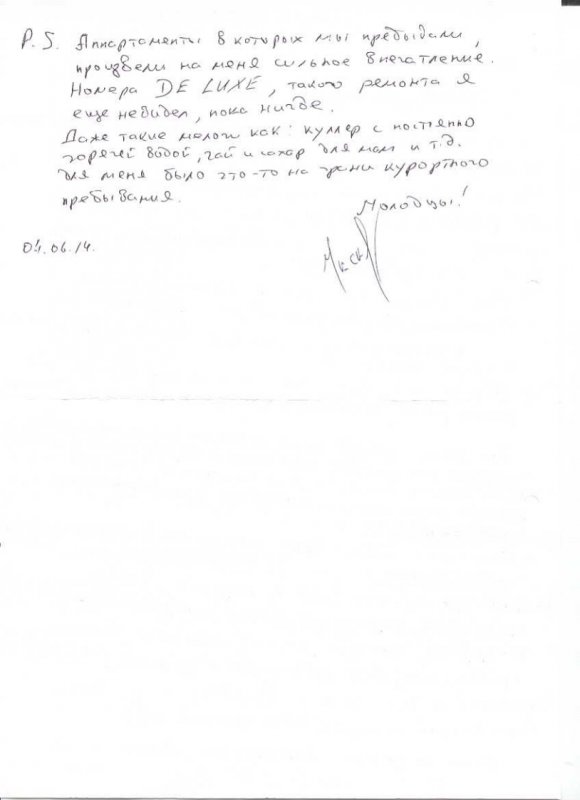 P.S. Аппартаменты в которых мы пребывали,
произвели на меня сильное впечатление.
Номера DE LUXE, такого ремонта я
еще невидел, пока нигде.
Даже такие мелочи как: куллер с постоянно
горячей водой, чай и сахар для мам и т.д.
для меня было это-то на грани курортного
пребывания.
Молодцы!
04.06.14.